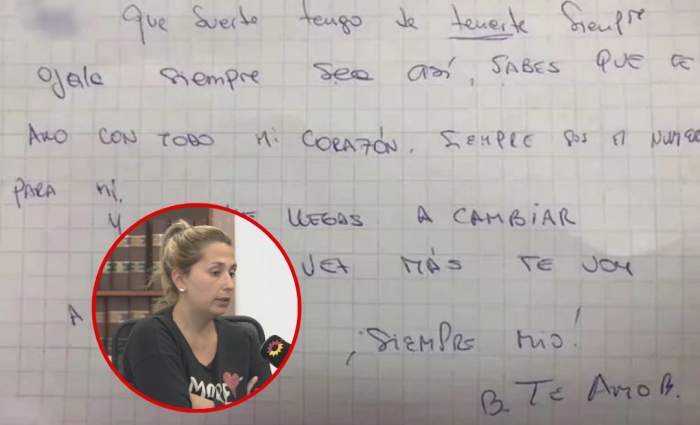 Que suerte tengo de tenerte siempre
Ojala siempre sea así, SABES QUE TE
AMO CON TODO Mi CORAZÓN. SiEMPRE SOS MI NUMER
PARA Mi.
Y LLEGAS A CAMBIAR
VEZ MÁS TE VOY
A
¡SIEMPRE MIO!
B. TE AMO B.
MORE